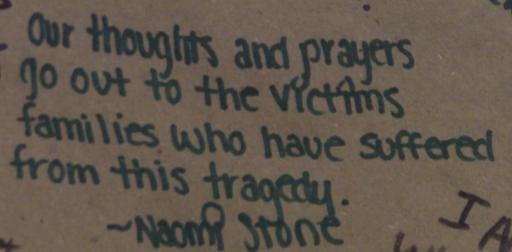 Our thoughts and prayers
go out to the victims
families who have suffered
from this tragedy.
~Naomi Stone
I A